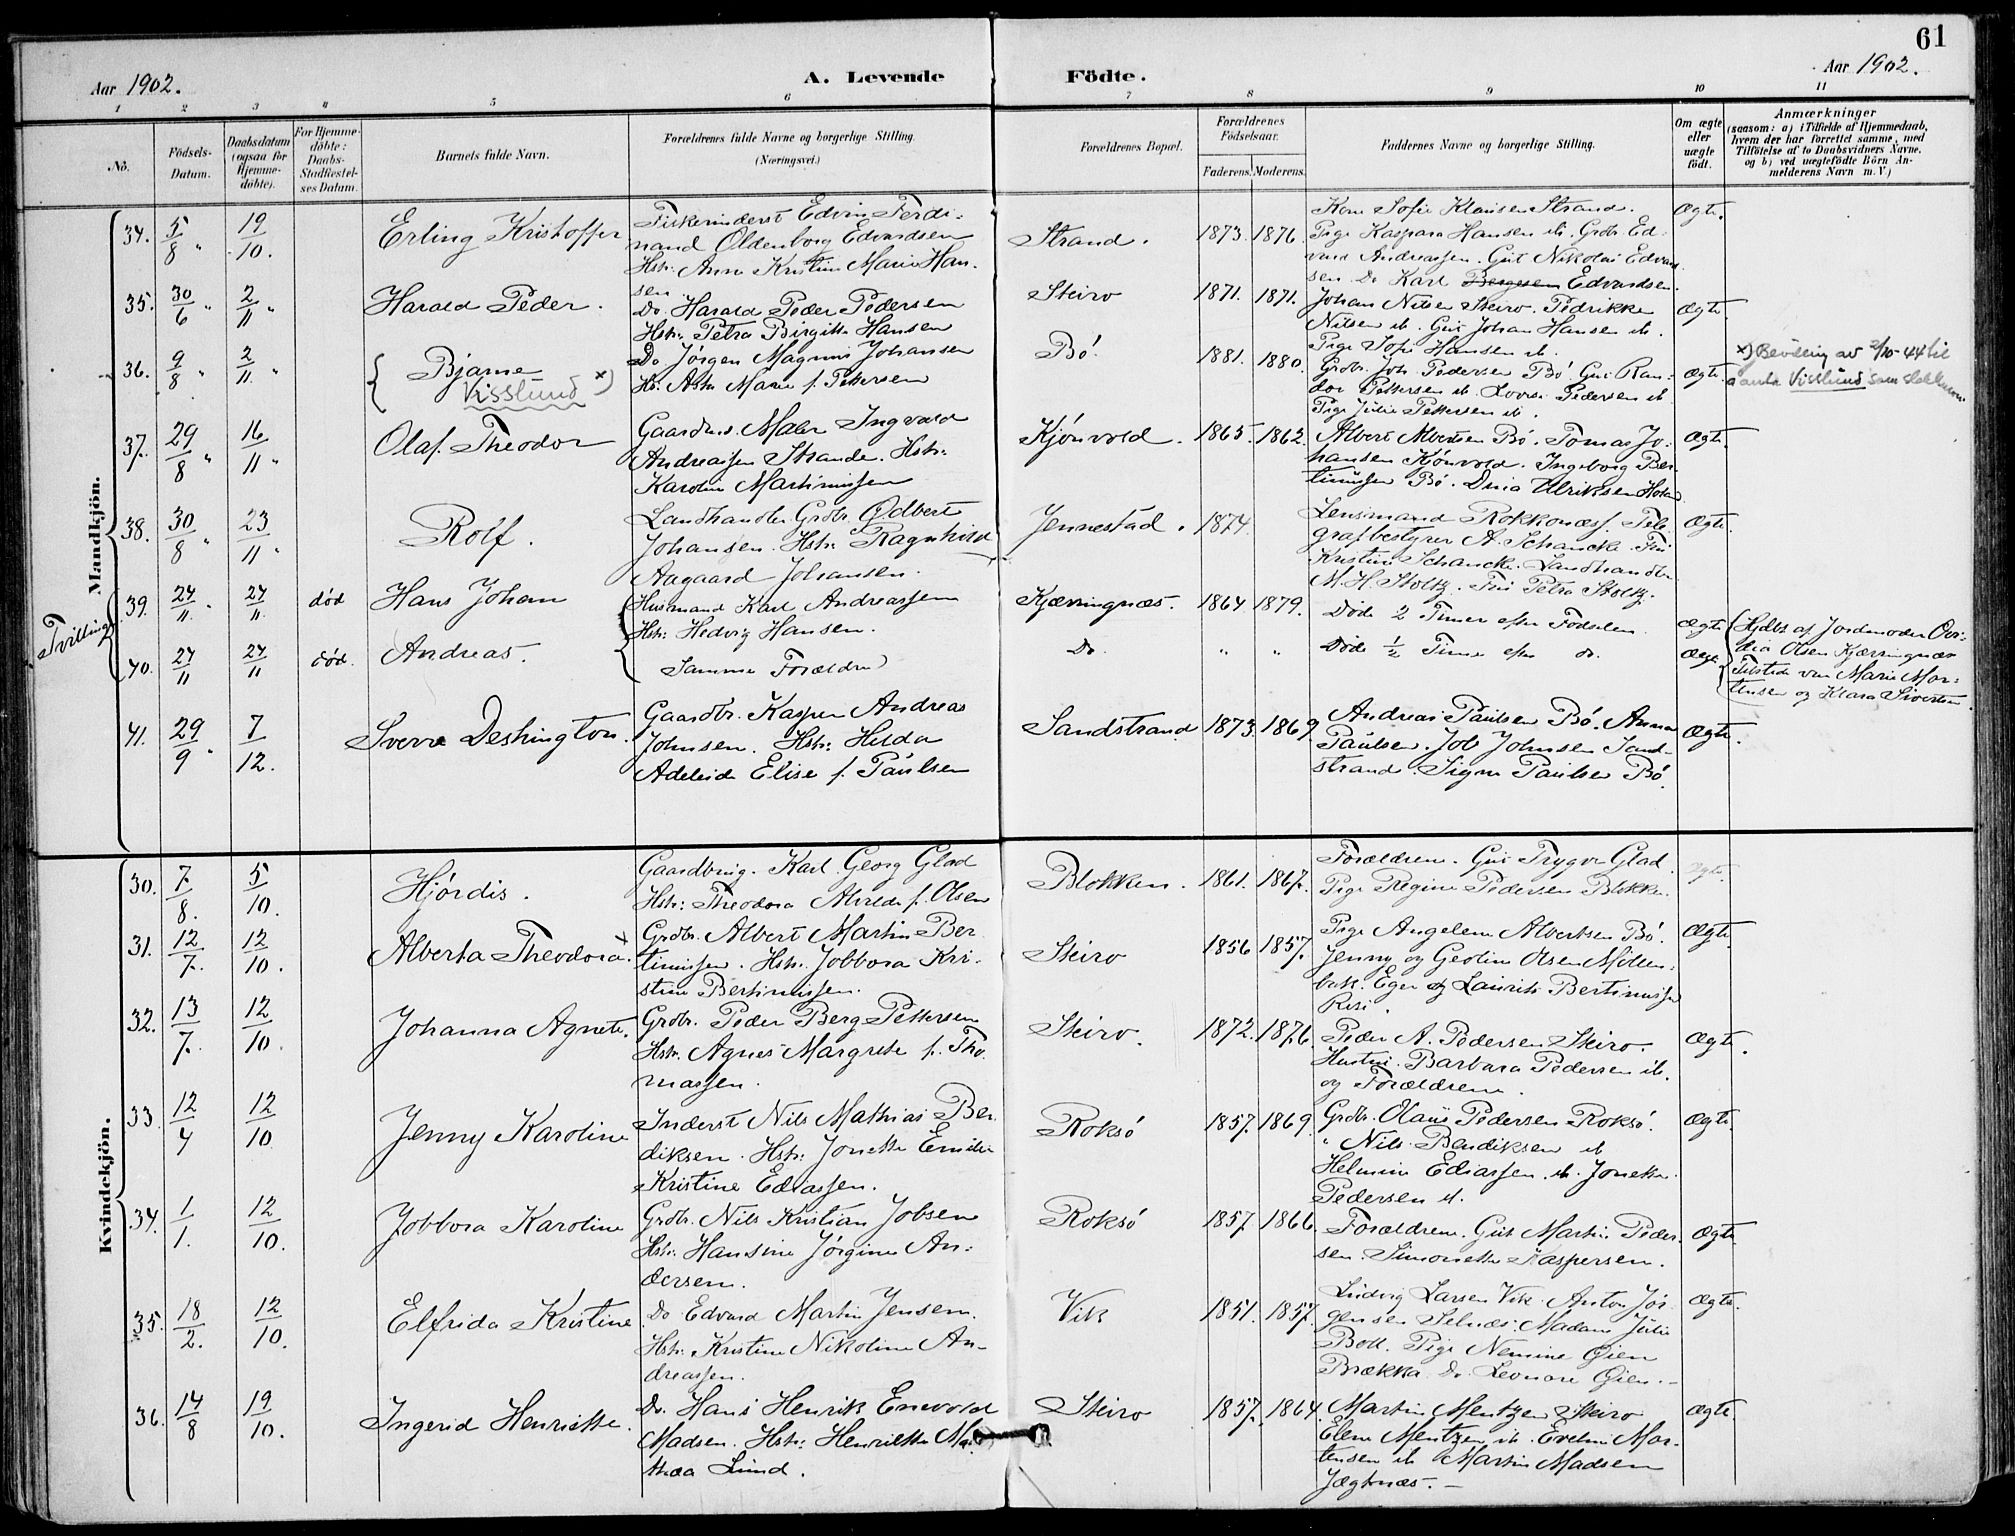 61
Aar 1902.
A. Levende Födte.
Aar 1902.
1 2 3 4 5 6 7 8 9 10 11
No.
Födsels-
Datum.
Daabsdatum
(ogsaa for
Hjemme-
döbte).
For Hjemme-
döbte:
Daabs-
Stadfæstel-
ses Datum.
Barnets fulde Navn.
Forældrenes fulde Navne og borgerlige Stilling.
(Næringsvei.)
Forældrenes Bopæl.
Forældrenes
Födselsaar.
Faderens. Moderens.
Faddernes Navne og borgerlige Stilling.
Om ægte
eller
uægte
født.
Anmærkninger
(saasom: a) i Tilfælde af Hjemmedaab,
hvem der har forrettet samme, med
Tilföielse af to Daabsvidners Navne,
og b) ved uægtefödte Börn An-
melderens Navn m. V.)
Mandkjön.
34. 5/8 " 19/10. Erling Kristoffer
Fiskerinderst Edvin Ferdi-
nand Oldenborg Edvardsen
Hstr: Anna Kristine Marie Han-
sen
Strand. 1873. 1876.
Kone Sofie Klausen Strand.
Pige Kaspara Hansen ib. Grdbr. Ed-
vard Andreassen. Gut Nikolai Edvard-
sen Do Karl Edvardsen.
Ægte.
35. 30/6 " 2/11 " Harald Peder.
Do. Harald Peder Pedersen
Hstr: Petra Birgitte Hansen
Steiro 1871. 1871.
Johan Nilsen Steiro. Pedrikke
Nilsen ib. Gut Johan Hansen ib.
Pige Sofie Hansen ib.
Ægte
36. 9/8 " 2/11. " Bjarne
Visslund x)
Do Jørgen Magnus Johansen
Hst. Marie f. Pettersen
Bö. 1881. 1880.
Grdbr. Joh. Pedersen Bö Gut Ran-
dor Pettersen ib. Pedersen ib
Pige Julie Pettersen ib.
Ægte
x) Bevilling av 2/10-44 til
å anta Visslund som slektsnavn
37. 29/8 " 16/11 " Olaf Theodor
Gaardbr. Maler Ingvald
Andreassen Strande. Hstr:
Karoline Martinussen
Kjönvold. 1865. 1862.
Albert Albertsen Bö. Tomas Jo-
hansen Kjönvold. Ingeborg Ber-
tinussen Bö. Ulriksen
Ægte.
38. 30/8 " 23/11 " Rolf.
Landhandler Grdbr. Ødbert
Johansen. Hstr: Ragnhild
Aagaard Johansen.
Jennestad. 1874.
Lensmand Rokkonæs. Tele-
grafbestyrer A. Schancke. Fru
Kristine Schancke. Landhandler
M. H. Stoltz. Fru Petra Stoltz.
Ægte.
Tvillinger
39. 24/11. " 24/11 død Hans Johan
Husmand Karl Andreassen
Hstr: Hedvig Hansen.
Kjærringnæs. 1864 1879.
Døde 2 Timer efter Fødselen.
Ægte
Hjdbt. af Jordemoder
Olsen Kjærringnæs
Tilstede var Marie Mor-
tensen og Klara Sivertsen.
40. 24/11 24/11 død. Andreas.
Samme Forældre
Do. " "
Døde ½ Time efter do.
Ægte
41. 29/9 " 7/12. Sverre Deshington.
Gaardbr. Kasper Andreas
Johnsen. Hstr: Hilda
Adeleide Elise f. Paulsen
Sandstrand 1873. 1869
Andreas Paulsen Bö. Anna
Paulsen. Job Johnsen Sand-
strand. Signe Paulsen Bö.
Ægte.
Kvindekjön.
30. 7/8. 5/10. Hjördis.
Gaardbrug. Karl Georg Glad
Hstr: Theodora Alvilde f. Olsen
Blokken. 1861. 1867.
Forældrene. Gut Trygve Glad.
Pige Regine Pedersen Blokken.
Ægte.
31. 12/7. 12/10. Alberta Theodora.
Grdbr. Albert Martin Ber-
tinussen. Hstr: Jobbora Kri-
stine Bertinussen.
Steiro 1856 1857.
Pige Angelene Albertsen Bö.
Jenny og Gedine Olsen Möllen-
bak. Eger og Laurits Bertinussen
Risö.
Ægte
32. 13/7. 12/10. Johanna Agnete.
Grdbr. Peder Berg Pettersen
Hstr. Agnes Margrete f. Tho-
massen.
Steiro. 1872. 1876.
Peder A. Pedersen Steiro.
Hustru Barbara Pedersen ib.
og Forældrene.
Ægte.
33. 12/4 12/10 Jenny Karoline
Inderst Nils Mathias Ben-
diksen. Hstr: Jonette Emilie
Kristine Ediassen.
Roksö 1857. 1869.
Grdbr. Olaus Pedersen Roksö.
" Nils Bendiksen ib
Helmine Ediassen. ib. Jonette
Pedersen ib.
Ægte.
34. 1/1. 12/10. Jobbora Karoline
Grdbr. Nils Kristian Jobsen
Hstr: Hansine Jørgine An-
dersen.
Roksö 1857 1866
Forældrene. Gut Martin Peder-
sen. Simonette Kaspersen.
Ægte.
35. 18/2. 12/10. Elfrida Kristine
Do. Edvard Martin Jensen.
Hstr: Kristine Nikoline An-
dreassen.
Vik 1851. 1857.
Ludvig Larsen Vik. Anton Jör-
gensen Selnæs. Madam Julie
Boll. Pige Nemine Øien
Brækka Do. Leonore Øien. -
Ægte.
36. 14/8 19/10. Ingerid Henriette.
Do. Hans Henrik Enevold
Madsen. Hstr: Henriette Ma-
thea Lund.
Steiro 1857. 1864.
Martin Mentzen Steiro
Elen Mentzen ib. Eveline Mor-
tensen ib Martin Madsen
Jægtnæs. -
Ægte.